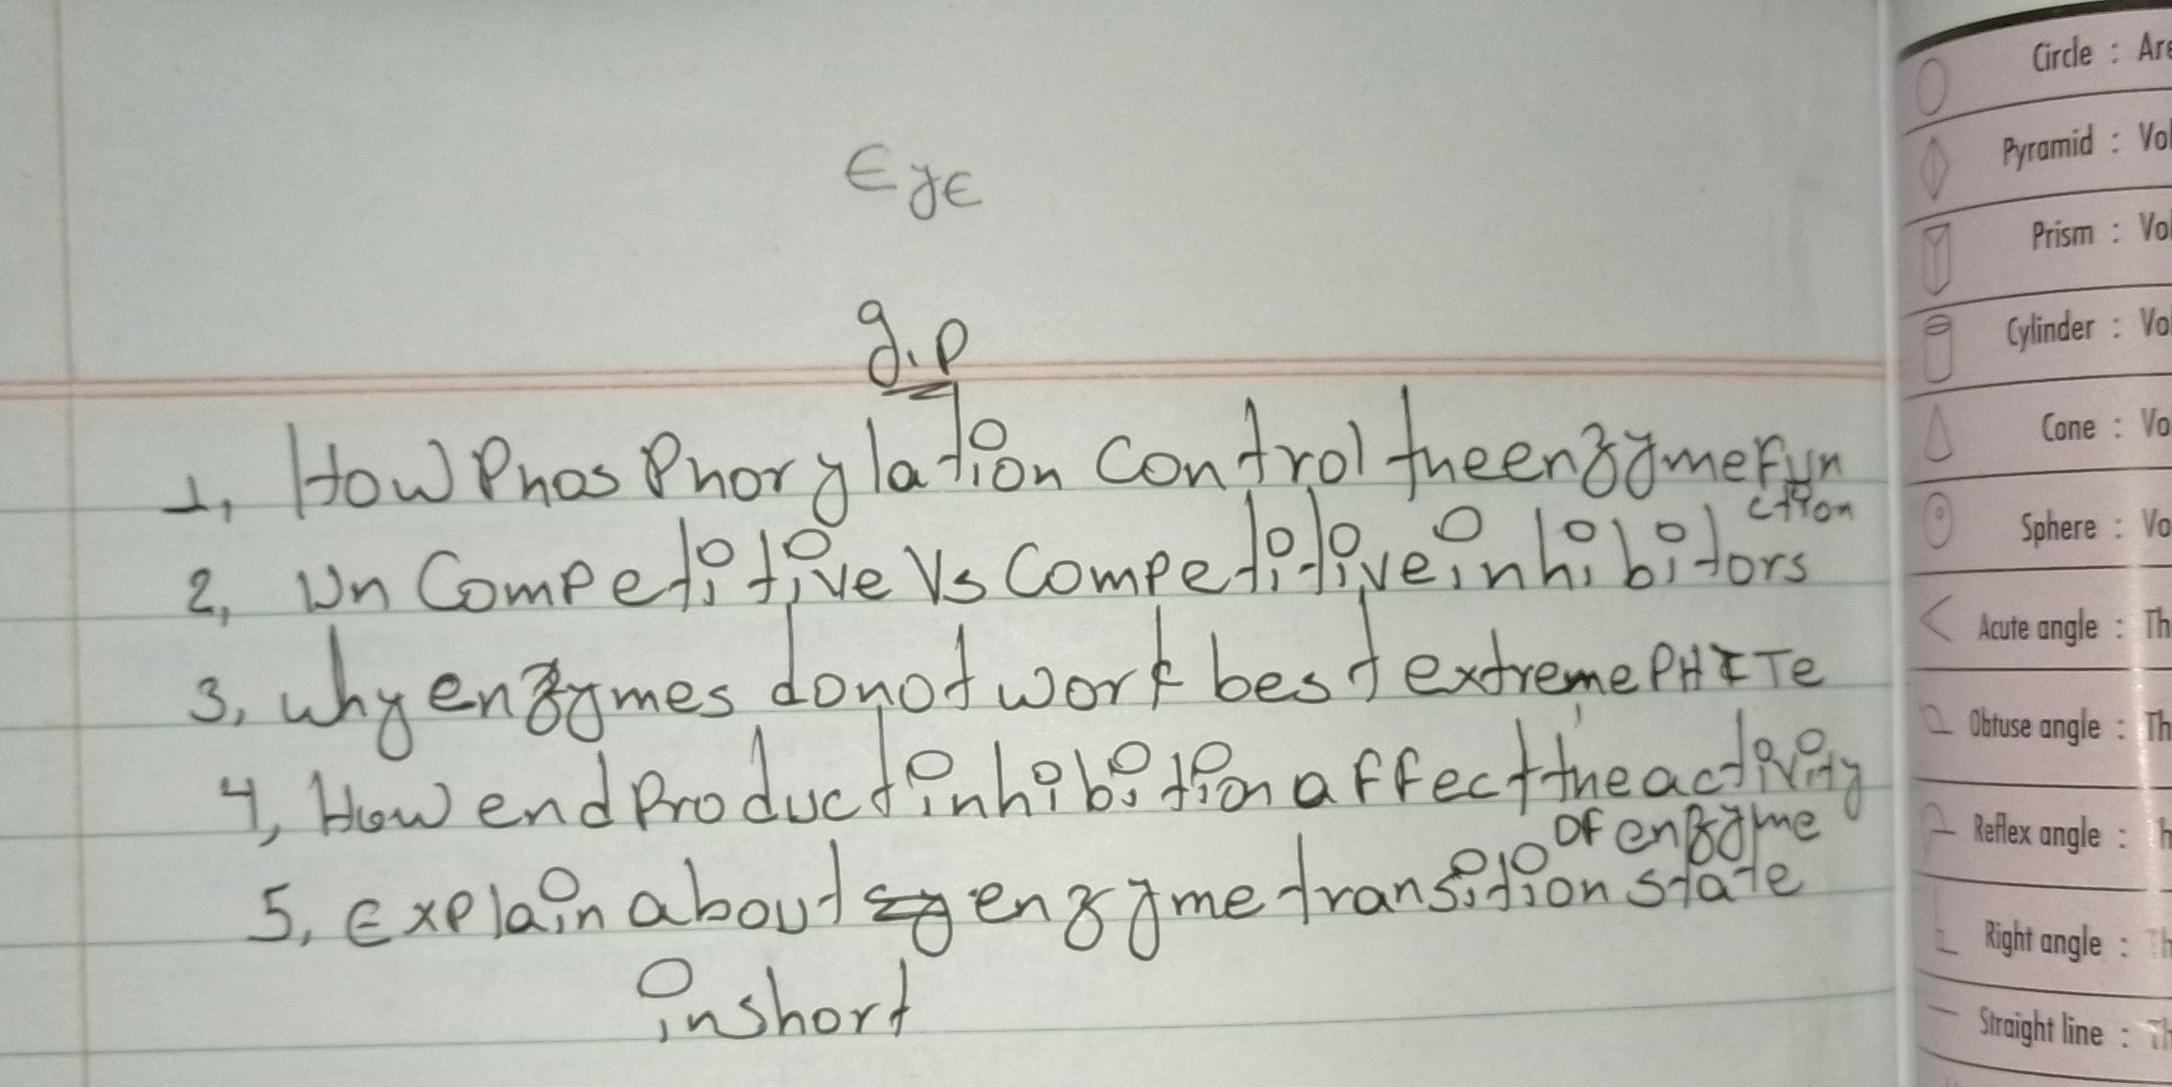 EyE
g.p
1, How Phosphorylation control the enzyme Fun
ction
2, Un Competitive Vs Competitive inhibitors
3, why enzymes do not work best extreme PH & Te
4, How end Product inhibition affect the activity
of enzyme
5, Explain about enzyme transition state
in short
Circle : Are
Pyramid : Vol
Prism : Vo
Cylinder : Vo
Cone : Vo
Sphere : Vo
Acute angle : Th
Obtuse angle : Th
Reflex angle : Th
Right angle : Th
Straight line : Th